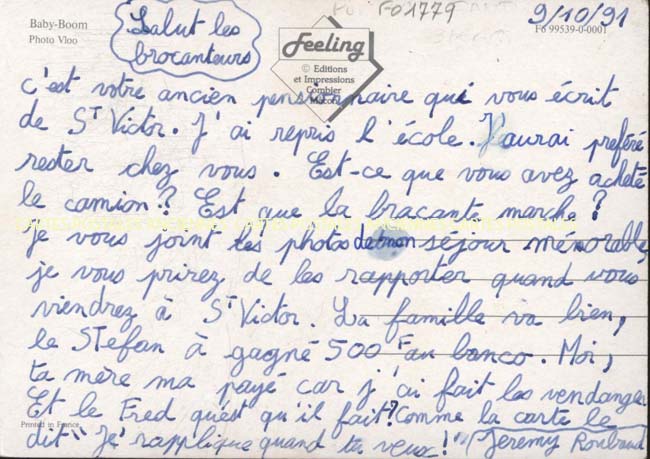 Baby-Boom
Photo Vloo
Salut les
brocanteurs
FO1779
9/10/91
F6 99539-0-0001
Feeling
© Editions
et Impressions
Combier
Mâcon
c'est votre ancien pensionnaire qui vous écrit
de St Victor. J'ai repris l'école. J'aurai preféré
rester chez vous. Est-ce que vous avez acheté
le camion? Est que la bracante marche?
je vous joint les photos de mon séjour mémorable,
je vous prirez de les rapporter quand vous
viendrez à St Victor. La famille va bien,
le STefan à gagné 500F au banco. Moi,
ta mère ma payé car j'ai fait les vendanges
Et le Fred qu'est qu'il fait? Comme la carte le
Printed in France
dit "Je rapplique quand tu veux!" Jeremy Roubaud